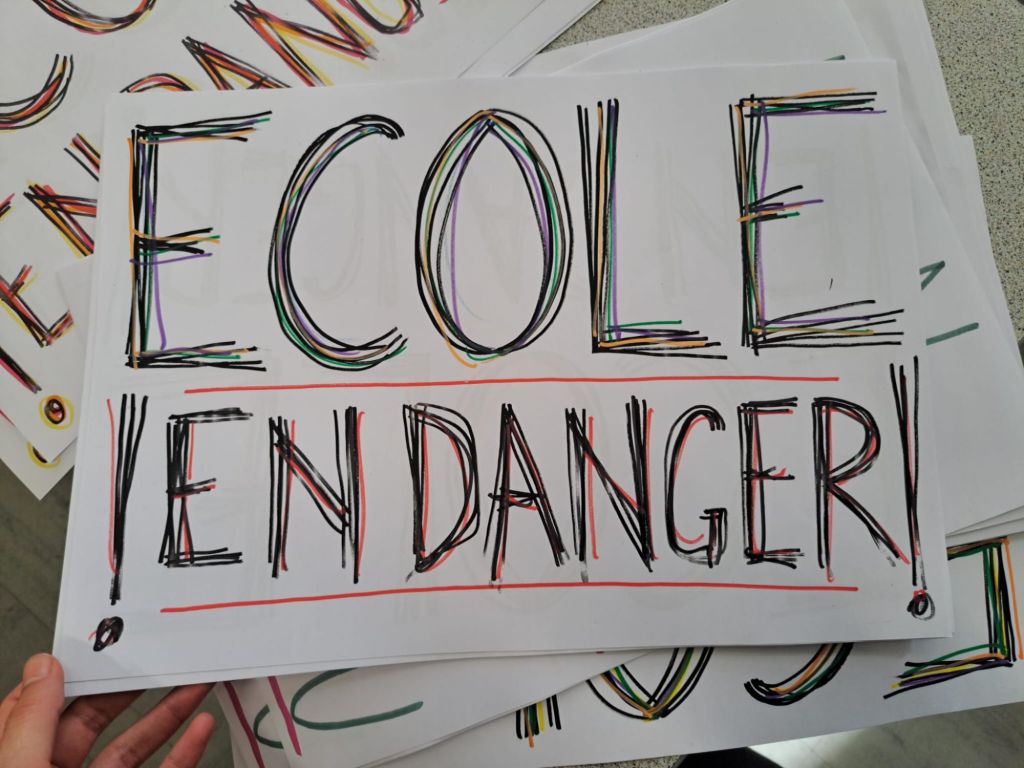 ECOLE
! EN DANGER !